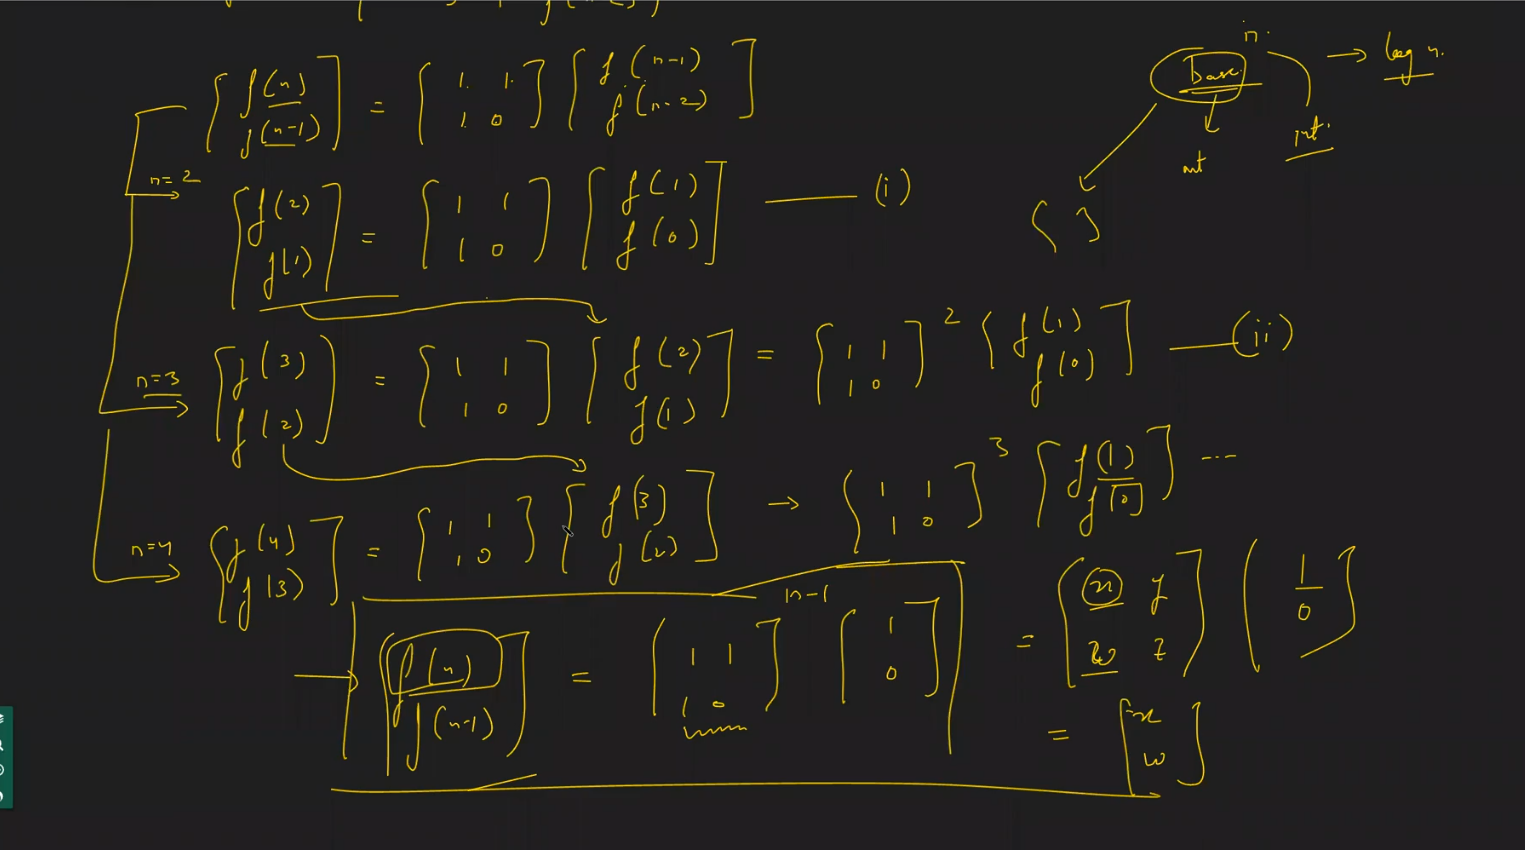 [f(n) f(n-1)] = [1 1 1 0] [f(n-1) f(n-2)]
n=2 [f(2) f(1)] = [1 1 1 0] [f(1) f(0)] —— (i)
n=3 [f(3) f(2)] = [1 1 1 0] [f(2) f(1)] = [1 1 1 0]^2 [f(1) f(0)] —— (ii)
n=4 [f(4) f(3)] = [1 1 1 0] [f(3) f(2)] → [1 1 1 0]^3 [f(1) f(0)] ...
→ [f(n) f(n-1)] = [1 1 1 0]^n-1 [1 0] = [x y w z] [1 0]
= [x w]
Base^n → log n.
int.
{ }